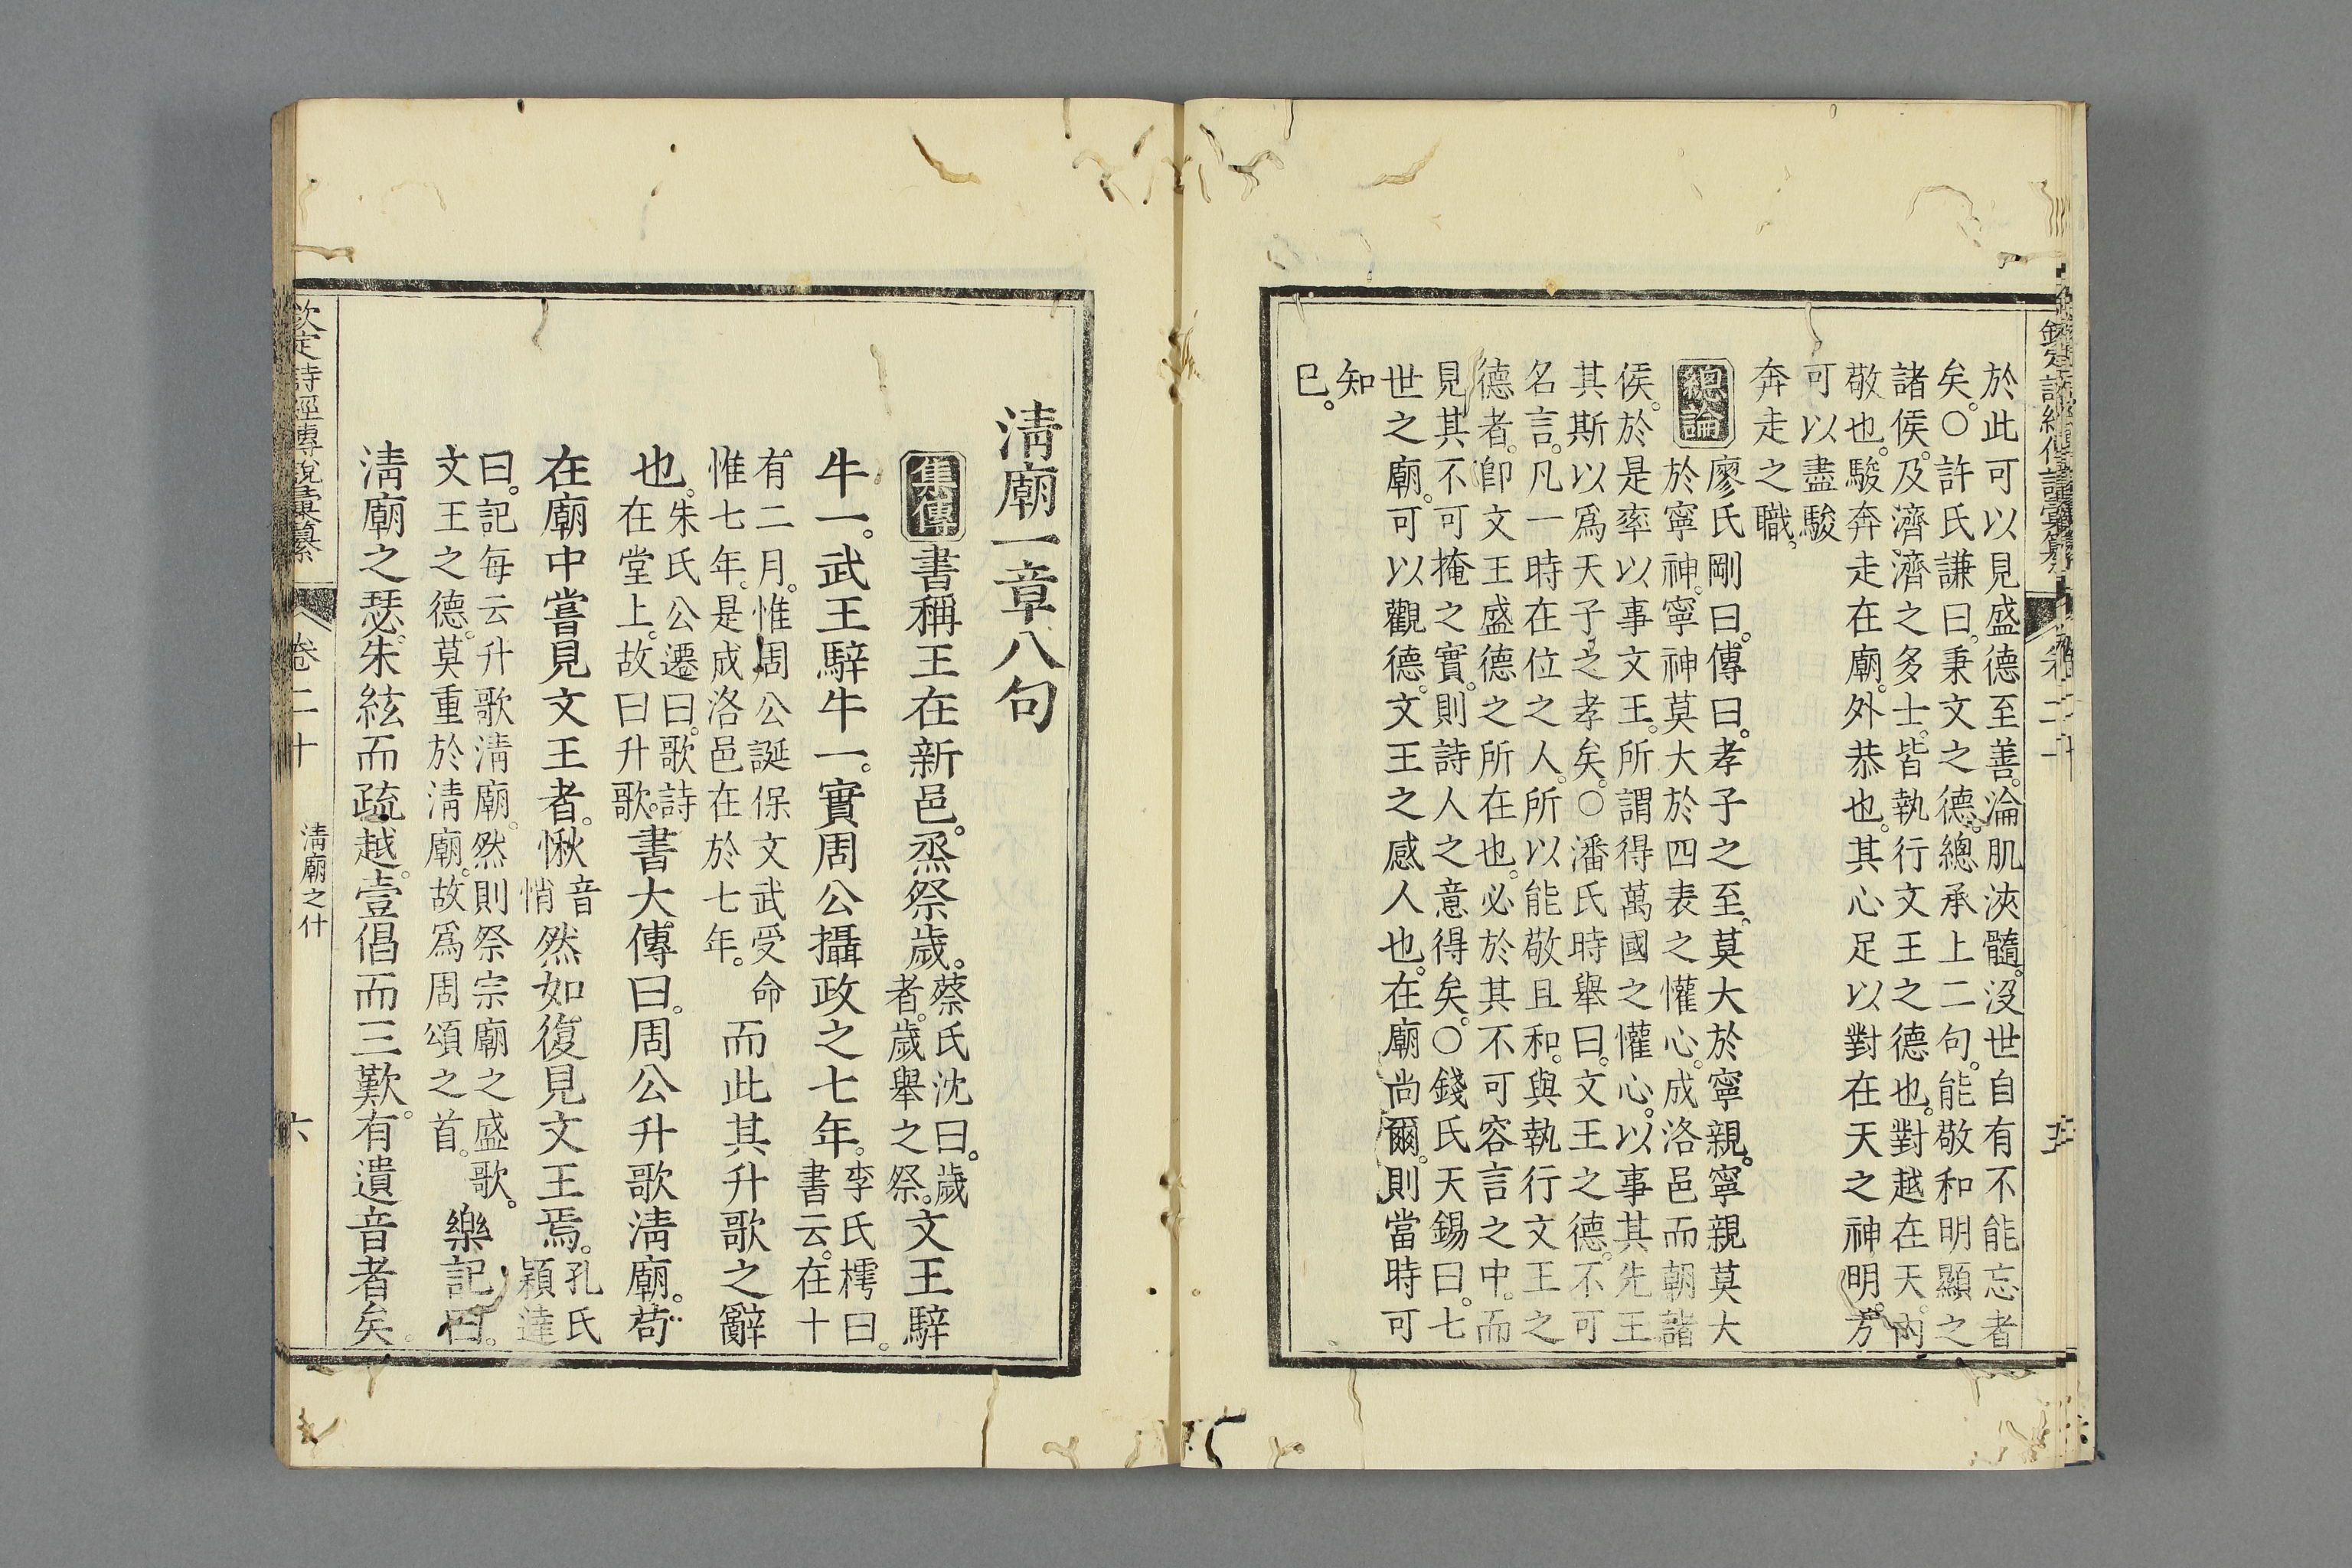 於此可以見盛德至善。淪肌浹髓。沒世自有不能忘者
矣。○許氏謙曰。秉文之德。總承上二句。能敬和明顯之
諸侯。及濟濟之多士。皆執行文王之德也。對越在天。內
敬也。駿奔走在廟。外恭也。其心足以對在天之神明。方
可以盡駿
奔走之職。
總論 廖氏剛曰。傳曰。孝子之至。莫大於寧親。寧親莫大
於寧神。寧神莫大於四表之懽心。成洛邑而朝諸
侯。於是率以事文王。所謂得萬國之懽心。以事其先王
其斯以爲天子之孝矣。○潘氏時舉曰。文王之德。不可
名言。凡一時在位之人。所以能敬且和。與執行文王之
德者。卽文王盛德之所在也。必於其不可容言之中。而
見其不可掩之實。則詩人之意得矣。○錢氏天錫曰。七
世之廟。可以觀德。文王之感人也。在廟尚爾。則當時可
知
已。
淸廟一章八句
集傳 書稱王在新邑。烝祭歲。蔡氏沈曰。歲者。歲舉之祭。文王騂
牛一。武王騂牛一。實周公攝政之七年。李氏樗曰。書云。在十
有二月。惟周公誕保文武受命惟七年。是成洛邑在於七年。而此其升歌之辭
也。朱氏公遷曰。歌詩在堂上。故曰升歌。書大傳曰。周公升歌淸廟。苟
在廟中嘗見文王者。愀音悄然如復見文王焉。孔氏穎達
曰。記每云升歌淸廟。然則祭宗廟之盛歌。文王之德。莫重於淸廟。故爲周頌之首。樂記曰。
淸廟之瑟。朱絃而疏越。壹倡而三歎。有遺音者矣。
欽定詩經傳說彙纂 卷二十 淸廟之什 六